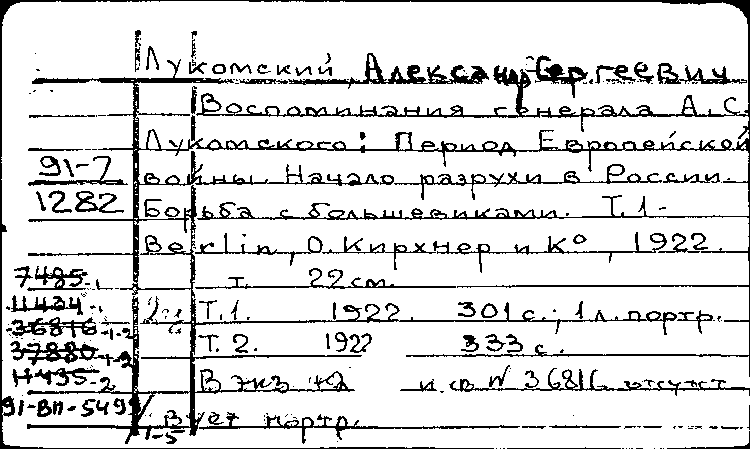 Лукомский, Александр Сергеевич
Воспоминания генерала А.С.
Лукомского: Период Европейской
войны. Начало разрухи в России.
Борьба с большевиками. Т.1-
Berlin, О. Кирхнер и К°, 1922.
т. 22см.
Т.1. 1922. 301 с.; 1 л. портр.
Т.2. 1922 333 с.
В экз и св № 36816 отсутст
вует портр.
91-7
1282
7485
11434
36816-1-2
37880-1-2
11435-2
91-ВП-5499/
1-5